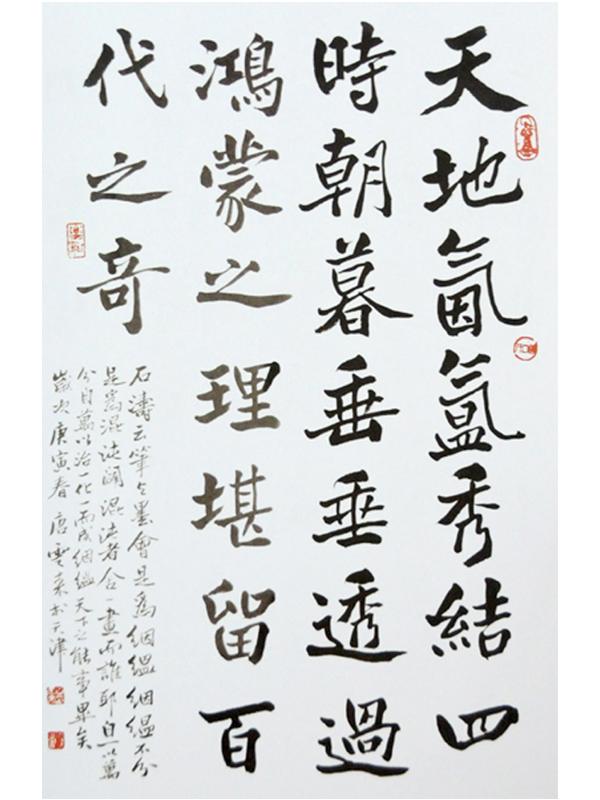 天地氤氲秀結四
時朝暮垂垂透過
鴻蒙之理堪留百
代之奇
石濤云筆与墨會是爲絪緼絪緼不分
是爲混沌闢混沌者舍一畫而誰耶自一以萬
分自萬以治一化一而成絪緼天下之能事畢矣
歲次庚寅春唐雲來於天津